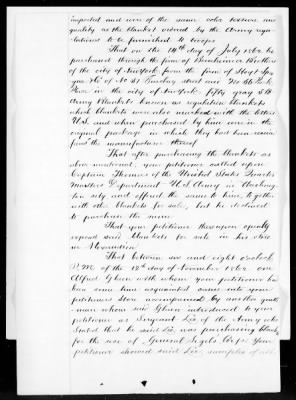 imported and were of the same color texture and
quality as the blanket ordered by the Army regu-
lations to be furnished to troops
That on the 14th day of July 1862 he
purchased through the firm of Brothers
of the city of New York from the firm of Hoyt
of No 41 Park
Place in the city of New York, fifty gray 5 lb
Army Blankets known as regulation blankets
which blankets were also marked with the letters
U.S. and when purchased by him were in the
original package in which they had been received
from the manufacturer thereof
That after purchasing the blankets as
above mentioned, your petitioner called upon
Captain Thomas of the United States Quarter
Master Department U.S. Army in Washing-
ton city and offered the same to him, together
with other blankets for sale, but he declined
to purchase the same
That your petitioner thereupon openly
exposed said blankets for sale in his store
in Alexandria
That between six and eight o'clock
P.M. of the 12th day of November 1862 one
Alfred with whom your petitioner has
been some time acquainted came into your
petitioners store accompanied by another gentle-
man whom said introduced to your
petitioner as Sergeant of the Army who
stated that he said was purchasing blankets
for the use of General Sigels Corps. Your
petitioner showed said samples of